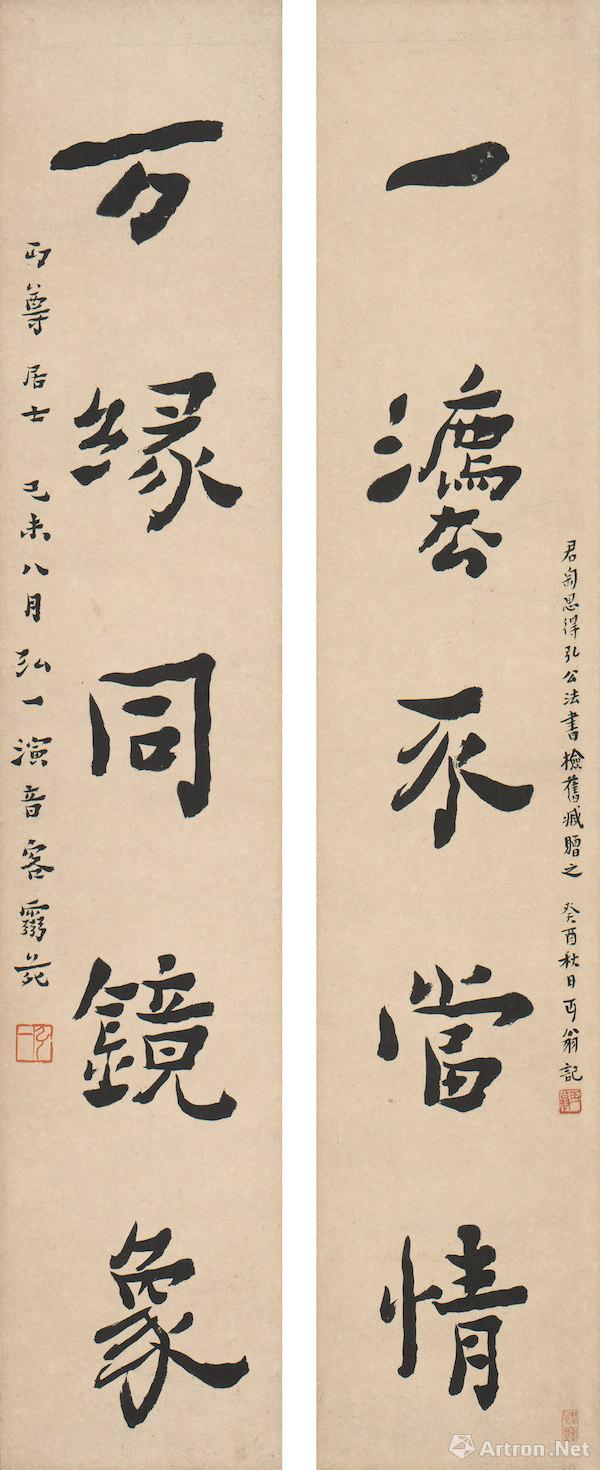 一灋不當情
君匋思得弘公法書檢舊臧贈之 癸酉秋日丏翁記
万緣同鏡象
丏尊居士 己未八月弘一演音客靈苑
弘一
Artron.Net